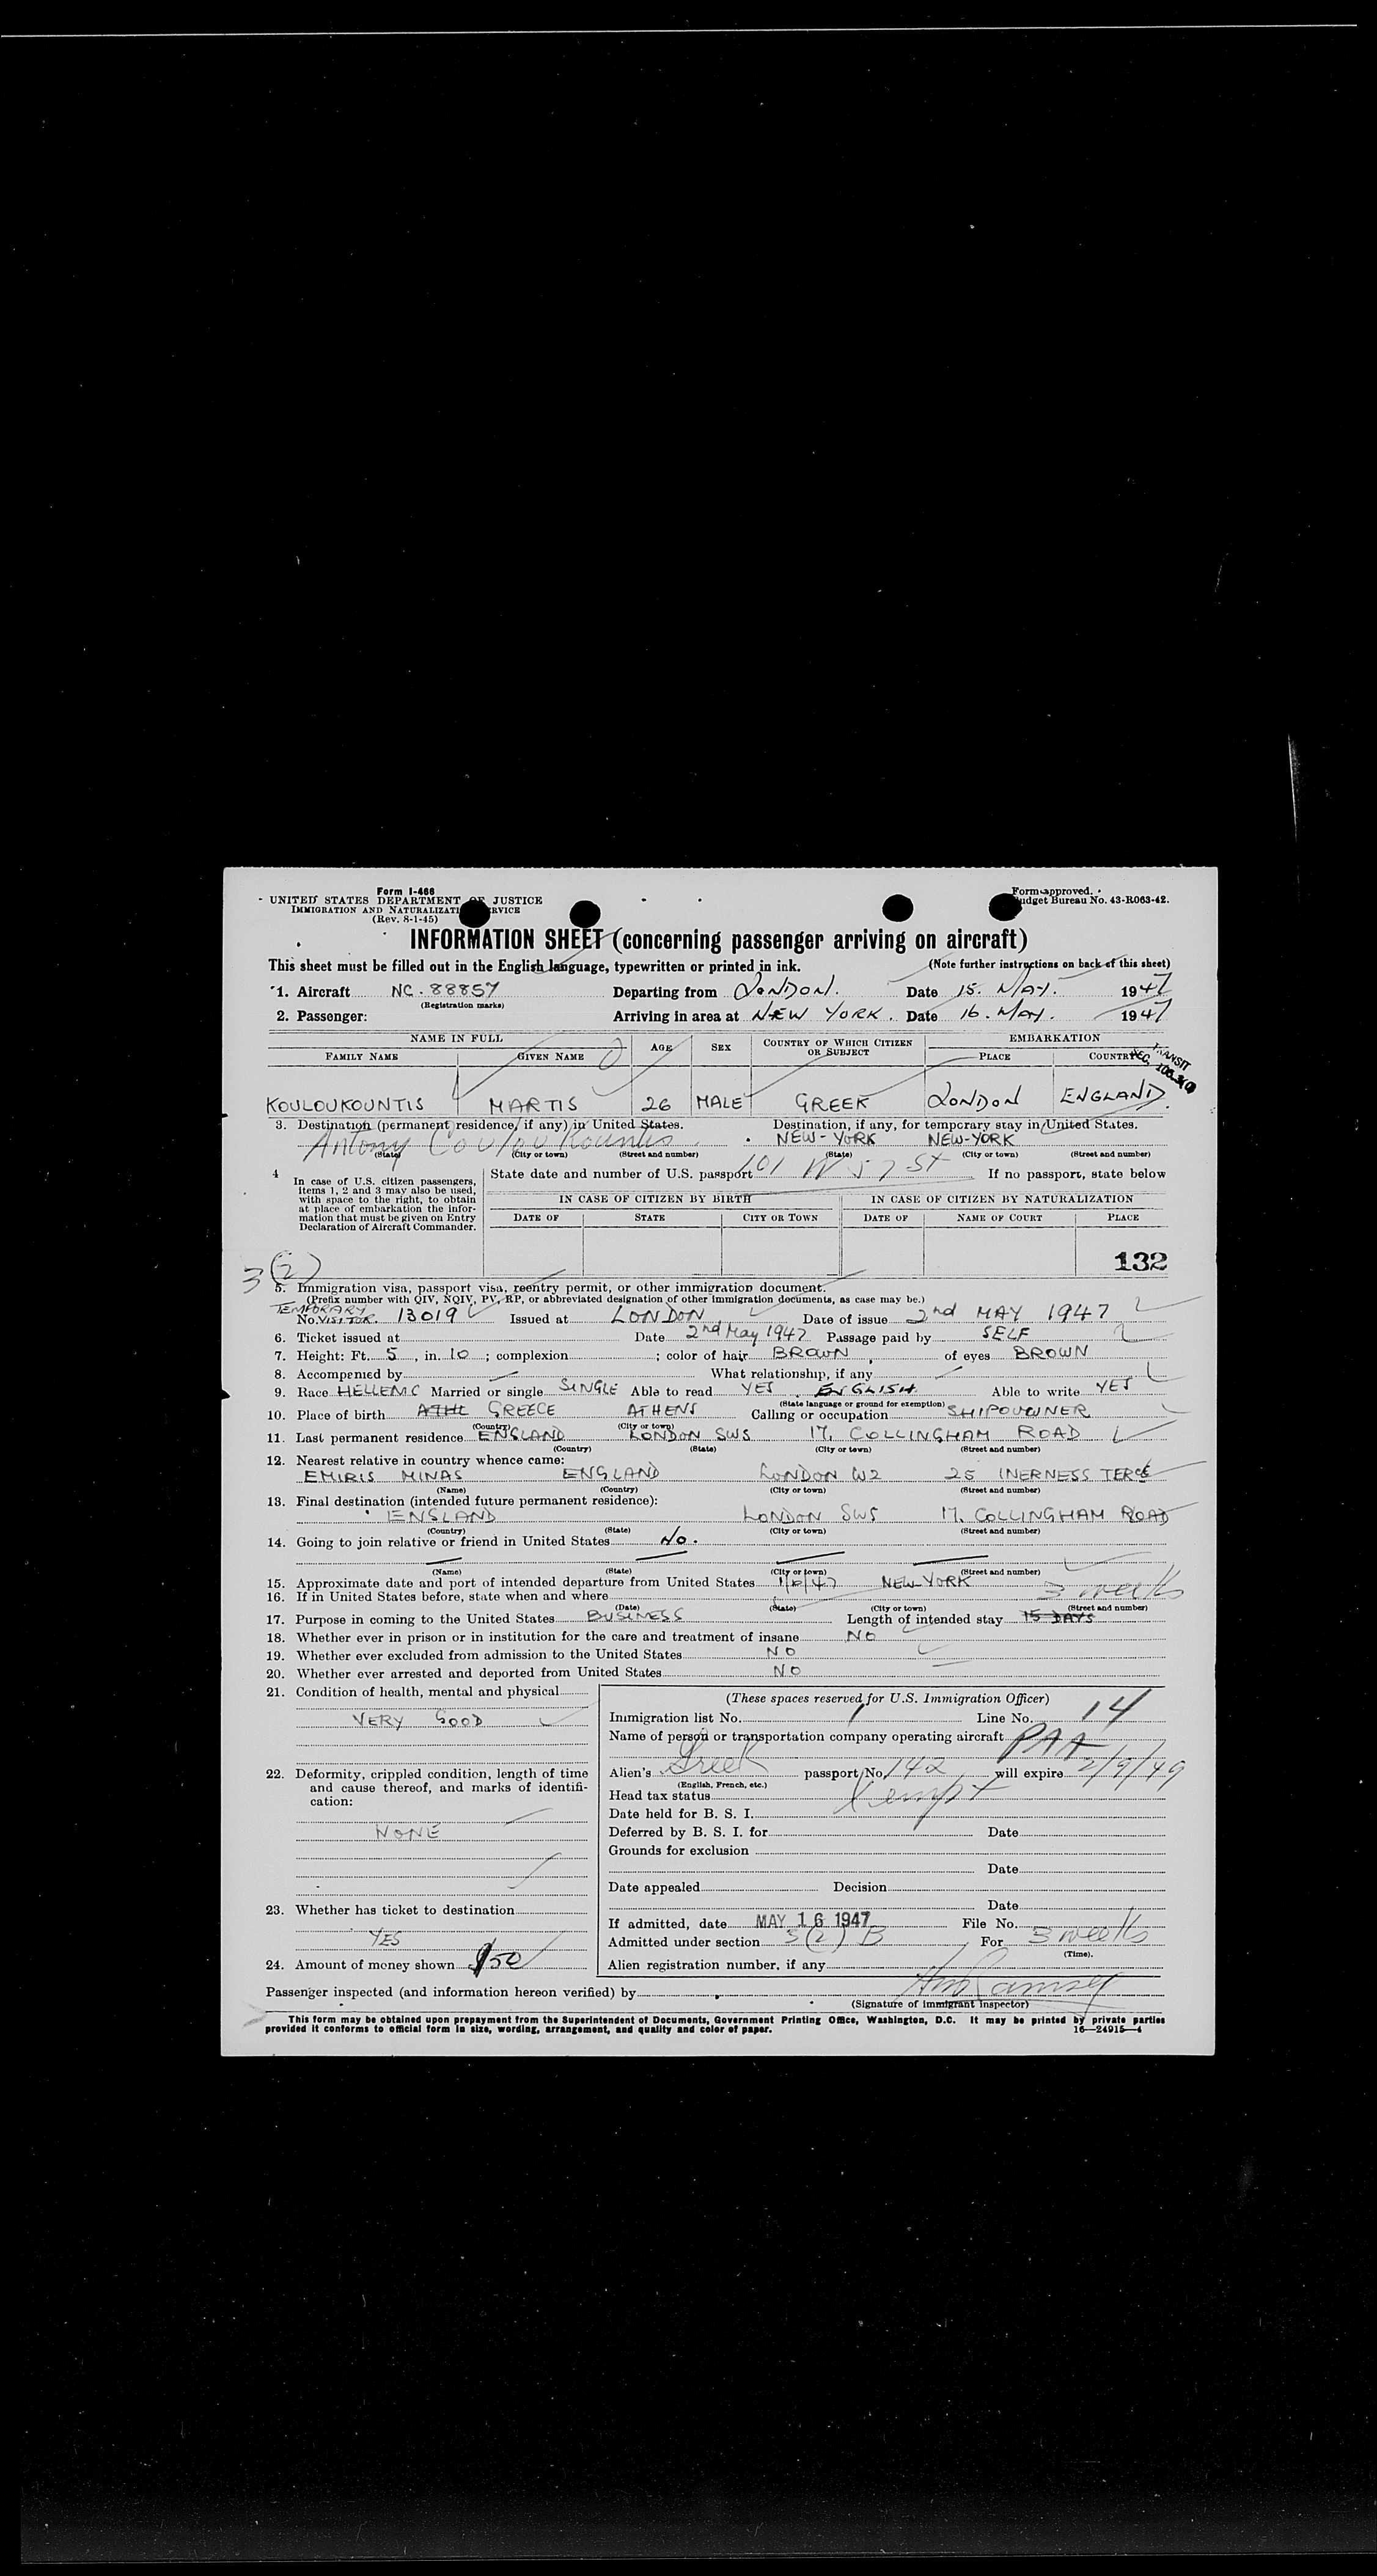 Form I-466
UNITED STATES DEPARTMENT OF JUSTICE
IMMIGRATION AND NATURALIZATION SERVICE
(Rev. 8-1-45)
Form approved.
Budget Bureau No. 43-R063-42.
INFORMATION SHEET (concerning passenger arriving on aircraft)
This sheet must be filled out in the English language, typewritten or printed in ink. (Note further instructions on back of this sheet)
1. Aircraft NC. 88857 Departing from LONDON. Date 15. MAY. 1947
(Registration marks)
2. Passenger: Arriving in area at NEW YORK. Date 16. MAY. 1947
NAME IN FULL AGE SEX COUNTRY OF WHICH CITIZEN OR SUBJECT EMBARKATION
FAMILY NAME GIVEN NAME PLACE COUNTRY
TRANSIT
KOULOUKOUNTIS MARTIS 26 MALE GREEK LONDON ENGLAND.
3. Destination (permanent residence, if any) in United States. Destination, if any, for temporary stay in United States.
Antony Coulou Kountis NEW-YORK NEW-YORK
(State) (City or town) (Street and number) (State) (City or town) (Street and number)
4 In case of U.S. citizen passengers, items 1, 2 and 3 may also be used, with space to the right, to obtain at place of embarkation the information that must be given on Entry Declaration of Aircraft Commander.
State date and number of U.S. passport 101 W 57 St If no passport, state below
IN CASE OF CITIZEN BY BIRTH IN CASE OF CITIZEN BY NATURALIZATION
DATE OF STATE CITY OR TOWN DATE OF NAME OF COURT PLACE
132
3(2)
5. Immigration visa, passport visa, reentry permit, or other immigration document.
(Prefix number with QIV, NQIV, PV, RP, or abbreviated designation of other immigration documents, as case may be.)
TEMPORARY
No. VISITOR. 13019 Issued at LONDON Date of issue 2nd MAY 1947
6. Ticket issued at Date 2nd May 1947 Passage paid by SELF
7. Height: Ft. 5, in. 10; complexion ; color of hair BROWN, of eyes BROWN
8. Accompanied by What relationship, if any
9. Race HELLENIC Married or single SINGLE Able to read YES. ENGLISH Able to write YES
(State language or ground for exemption)
10. Place of birth ATHE GREECE ATHENS Calling or occupation SHIPOWNER
(Country) (City or town)
11. Last permanent residence ENGLAND LONDON SW5 17, COLLINGHAM ROAD
(Country) (State) (City or town) (Street and number)
12. Nearest relative in country whence came:
EMIRIS MINAS ENGLAND LONDON W2 25 INERNESS TERCE
(Name) (Country) (City or town) (Street and number)
13. Final destination (intended future permanent residence):
ENGLAND LONDON SW5 17, COLLINGHAM ROAD
(Country) (State) (City or town) (Street and number)
14. Going to join relative or friend in United States No.
(Name) (State) (City or town) (Street and number)
15. Approximate date and port of intended departure from United States 1/6/47 NEW YORK
16. If in United States before, state when and where 3 weeks
(Date) (State) (City or town) (Street and number)
17. Purpose in coming to the United States BUSINESS Length of intended stay 15 DAYS
18. Whether ever in prison or in institution for the care and treatment of insane NO
19. Whether ever excluded from admission to the United States NO
20. Whether ever arrested and deported from United States NO
21. Condition of health, mental and physical
VERY GOOD
22. Deformity, crippled condition, length of time and cause thereof, and marks of identification:
NONE
23. Whether has ticket to destination
YES
24. Amount of money shown $50
(These spaces reserved for U.S. Immigration Officer)
Immigration list No. 1 Line No. 14
Name of person or transportation company operating aircraft PAA
Alien's Greek passport No. 142 will expire 2/9/49
(English, French, etc.)
Head tax status Exempt
Date held for B. S. I.
Deferred by B. S. I. for Date
Grounds for exclusion
Date
Date appealed Decision
Date
If admitted, date MAY 16 1947 File No.
Admitted under section 3(2) B For 3 weeks
(Time).
Alien registration number, if any
Passenger inspected (and information hereon verified) by
(Signature of immigrant inspector)
This form may be obtained upon prepayment from the Superintendent of Documents, Government Printing Office, Washington, D.C. It may be printed by private parties
provided it conforms to official form in size, wording, arrangement, and quality and color of paper. 16—24915-4